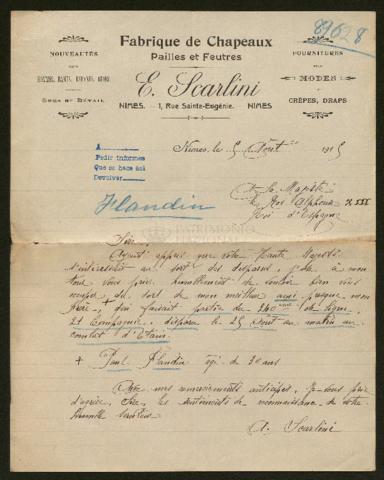 89628
Fabrique de Chapeaux
Pailles et Feutres
NOUVEAUTÉS
POUR
GROS ET DÉTAIL
FOURNITURES
POUR
MODES
CRÊPES, DRAPS
E. Scarlini
NIMES. — 1, Rue Sainte-Eugénie. — NIMES
Nimes, le 5 Août 1915
A
Pedir informes
Que se hace acá
Devolver
Flandin
A Sa Majesté
le Roi Alphonse XIII
Roi d'Espagne
PATRIMONIO
NACIONAL
Sire,
Ayant appris que votre Haute Majesté
s'intéressait au sort des disparus, je à mon
tour vous prie humblement de vouloir bien vous
occuper du sort de mon meilleur ami presque mon
frère, + qui faisait partie du 240 de ligne
21 Compagnie, disparu le 25 Août au matin au
combat d'Etain.
+ Paul Flandin âgé de 30 ans
Avec mes remerciements anticipés, je vous prie
d'agréer, Sire, les sentiments de reconnaissance de votre
humble serviteur
Scarlini